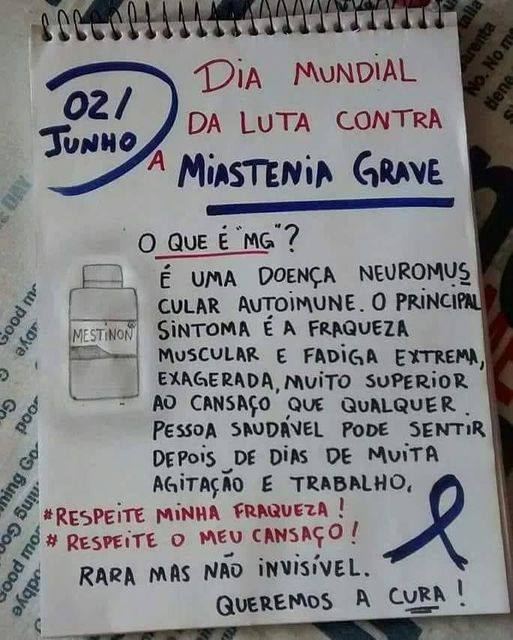 02/
JUNHO
DIA MUNDIAL
DA LUTA CONTRA
A MIASTENIA GRAVE
O QUE É "MG"?
MESTINON
É UMA DOENÇA NEUROMUS
CULAR AUTOIMUNE. O PRINCIPAL
SINTOMA É A FRAQUEZA
MUSCULAR E FADIGA EXTREMA,
EXAGERADA, MUITO SUPERIOR
AO CANSAÇO QUE QUALQUER
PESSOA SAUDÁVEL PODE SENTIR
DEPOIS DE DIAS DE MUITA
AGITAÇÃO E TRABALHO.
#RESPEITE MINHA FRAQUEZA!
# RESPEITE O MEU CANSAÇO!
RARA MAS NÃO INVISÍVEL.
QUEREMOS A CURA!